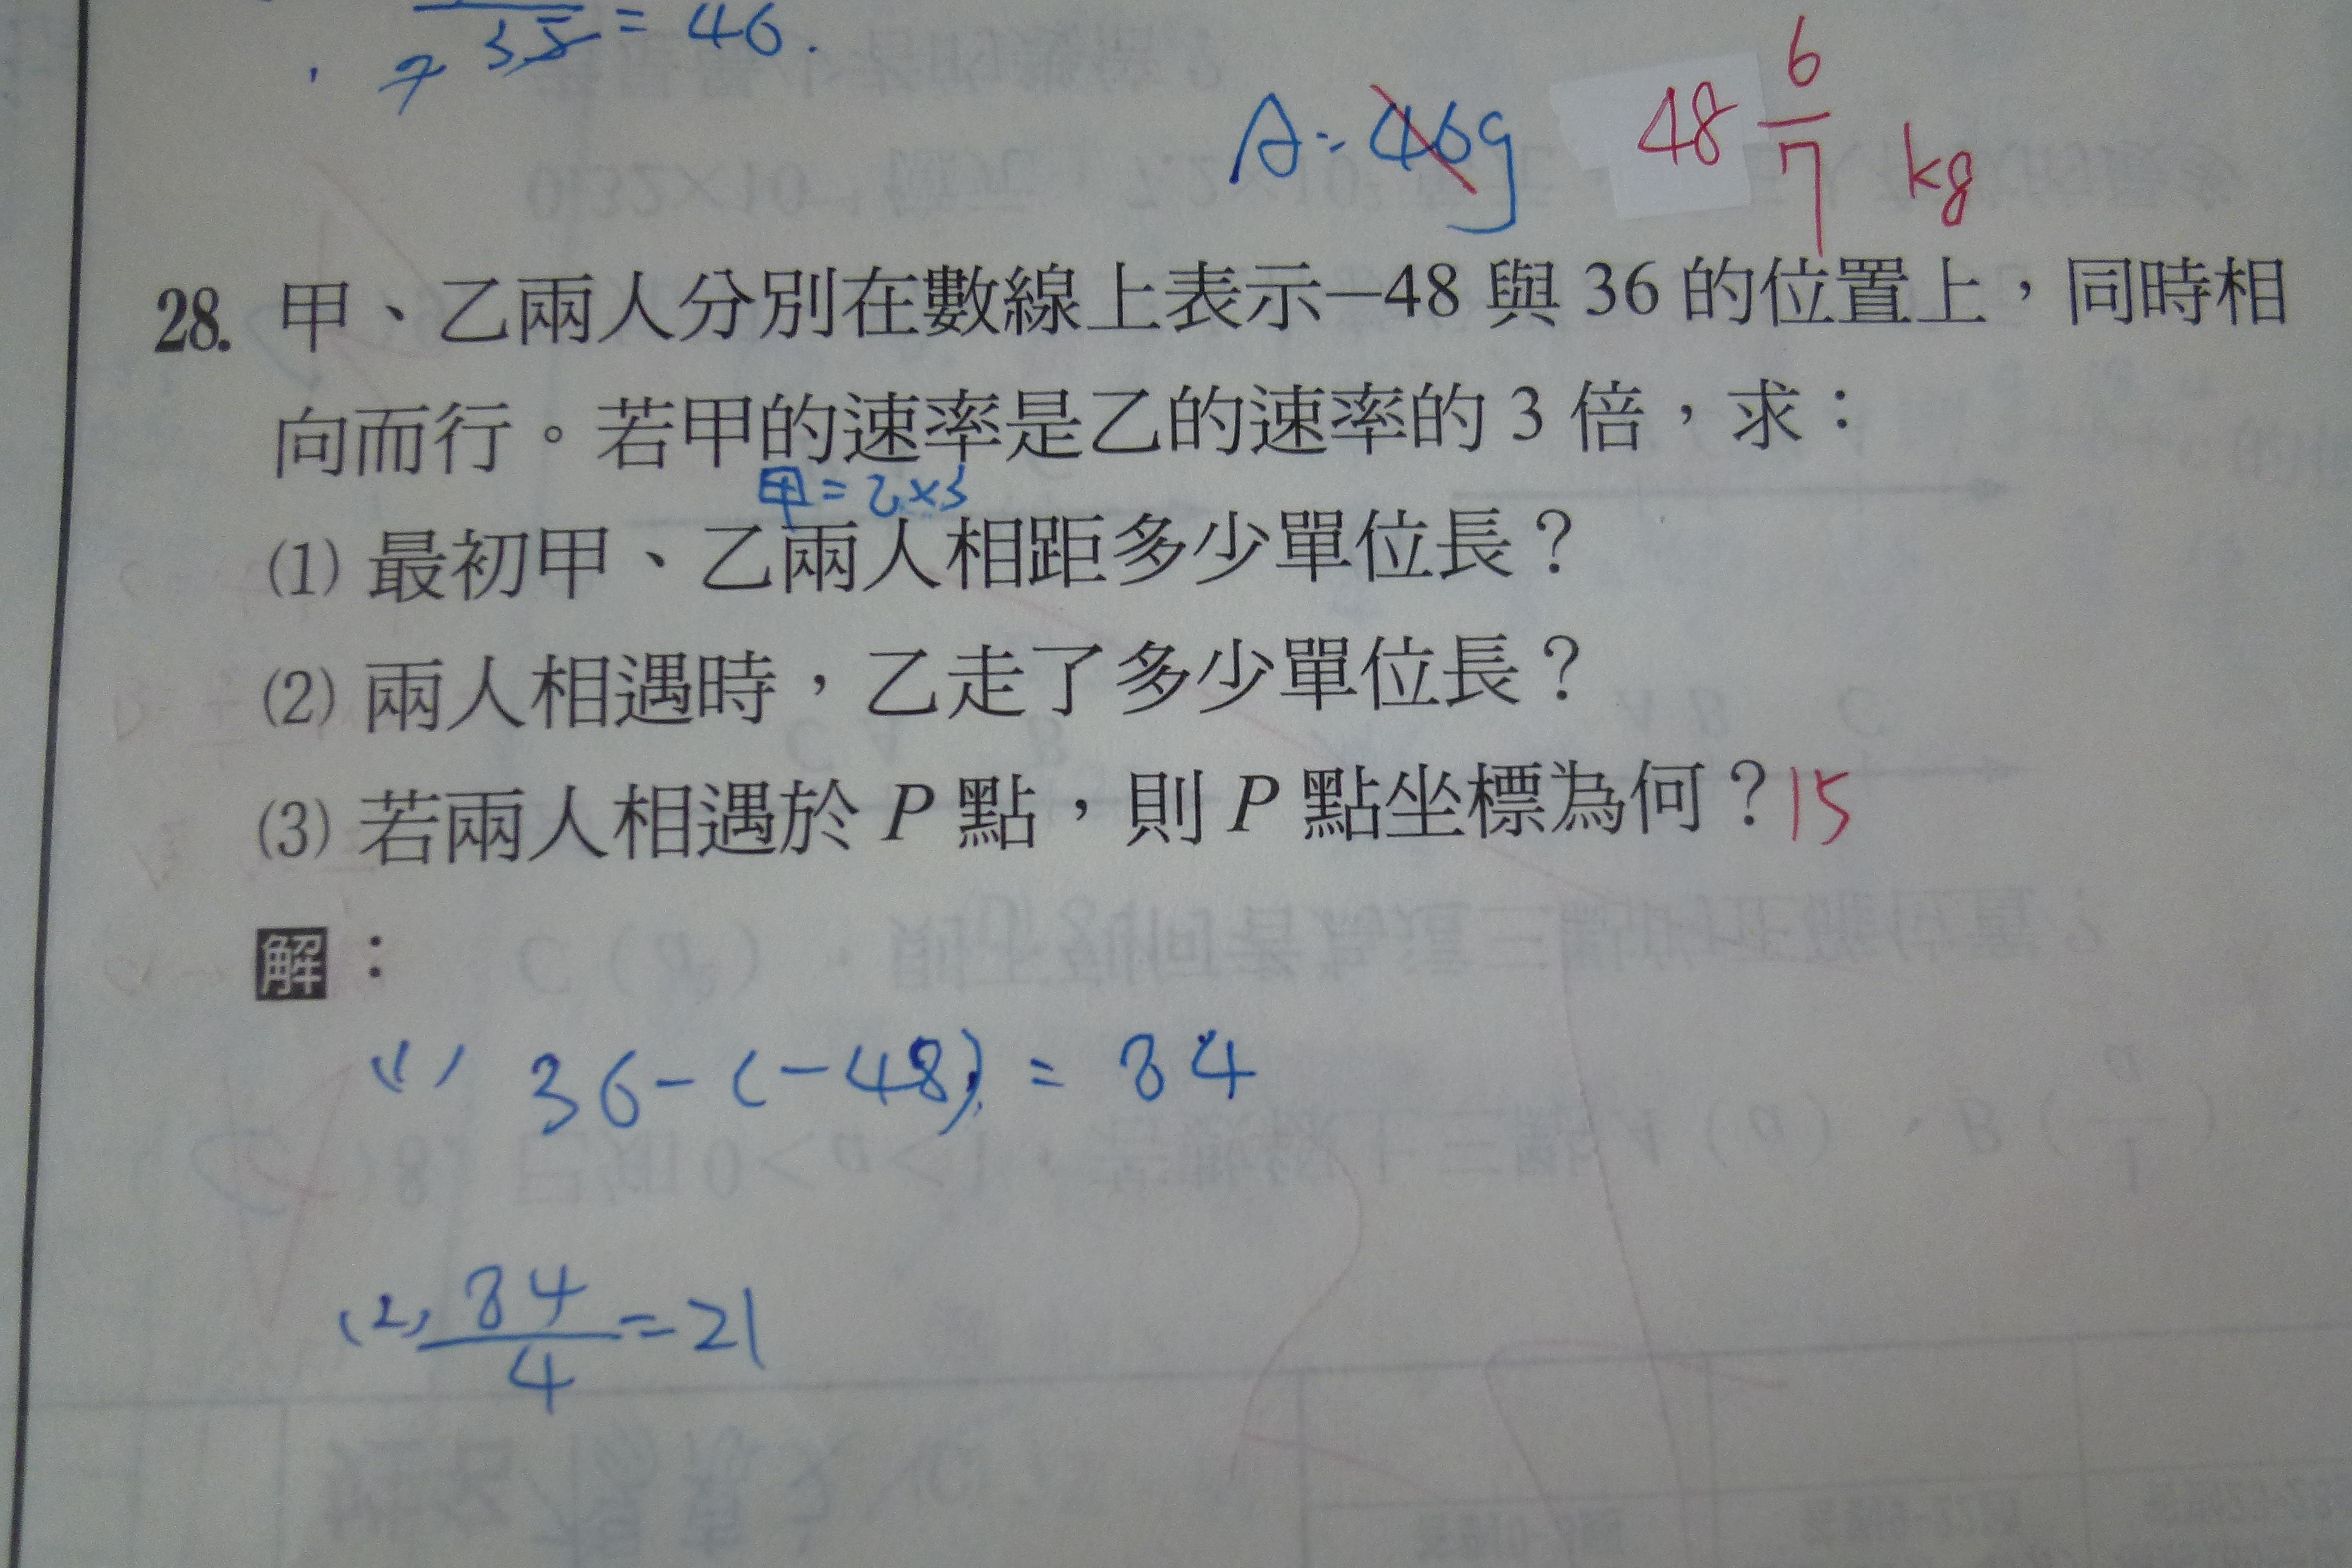 7 35 = 46.
A: 46g 48 6/7 kg
28. 甲、乙兩人分別在數線上表示-48 與 36 的位置上,同時相
向而行。若甲的速率是乙的速率的 3 倍,求:
甲=乙×3
(1) 最初甲、乙兩人相距多少單位長?
(2) 兩人相遇時,乙走了多少單位長?
(3) 若兩人相遇於 P 點,則 P 點坐標為何?15
解:
(1) 36-(-48)=84
(2) 84/4=21